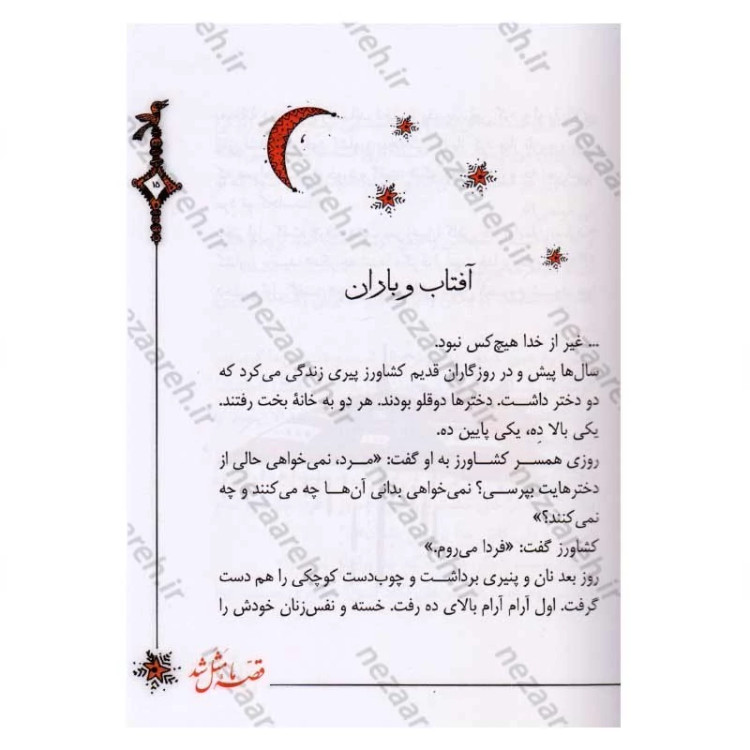 ۱۵
آفتاب و باران
... غیر از خدا هیچ‌کس نبود.
سال‌ها پیش و در روزگاران قدیم کشاورز پیری زندگی می‌کرد که
دو دختر داشت. دخترها دوقلو بودند. هر دو به خانهٔ بخت رفتند.
یکی بالا دِه، یکی پایین ده.
روزی همسر کشاورز به او گفت: «مرد، نمی‌خواهی حالی از
دخترهایت بپرسی؟ نمی‌خواهی بدانی آن‌ها چه می‌کنند و چه
نمی‌کنند؟»
کشاورز گفت: «فردا می‌روم.»
روز بعد نان و پنیری برداشت و چوب‌دست کوچکی را هم دست
گرفت. اول آرام آرام بالای ده رفت. خسته و نفس‌زنان خودش را
قصّه ما مَثَل شد
nezaareh.ir